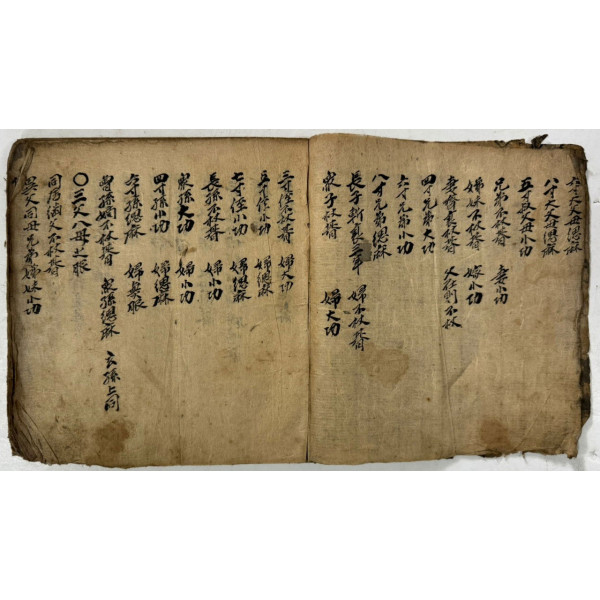 大父母緦麻
八寸大父母緦麻
五寸叔父母小功
兄弟不杖朞 妻小功
姊妹不杖朞 嫁小功
妻齊衰杖朞 父在則不杖
四寸兄弟大功
六寸兄弟小功
八寸兄弟緦麻
長子斬衰三年 婦不杖朞
衆子不杖朞 婦大功
三寸侄不杖朞 婦大功
五寸侄小功 婦緦麻
七寸侄小功 婦緦麻
長孫不杖朞 婦小功
衆孫大功 婦小功
四寸孫小功 婦緦麻
六寸孫緦麻 婦無服
曾孫嫡不杖朞 衆孫緦麻 玄孫上同
〇三父八母之服
同居繼父不杖朞
異父同母兄弟姊妹小功